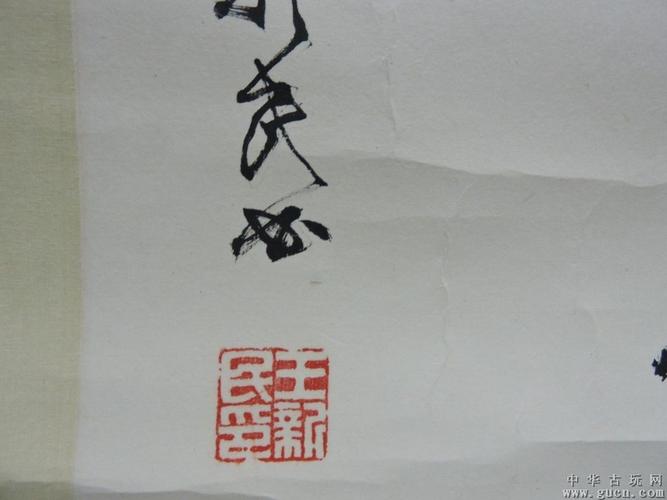 新民书
王新
民印
中华古玩网
www.gucn.com